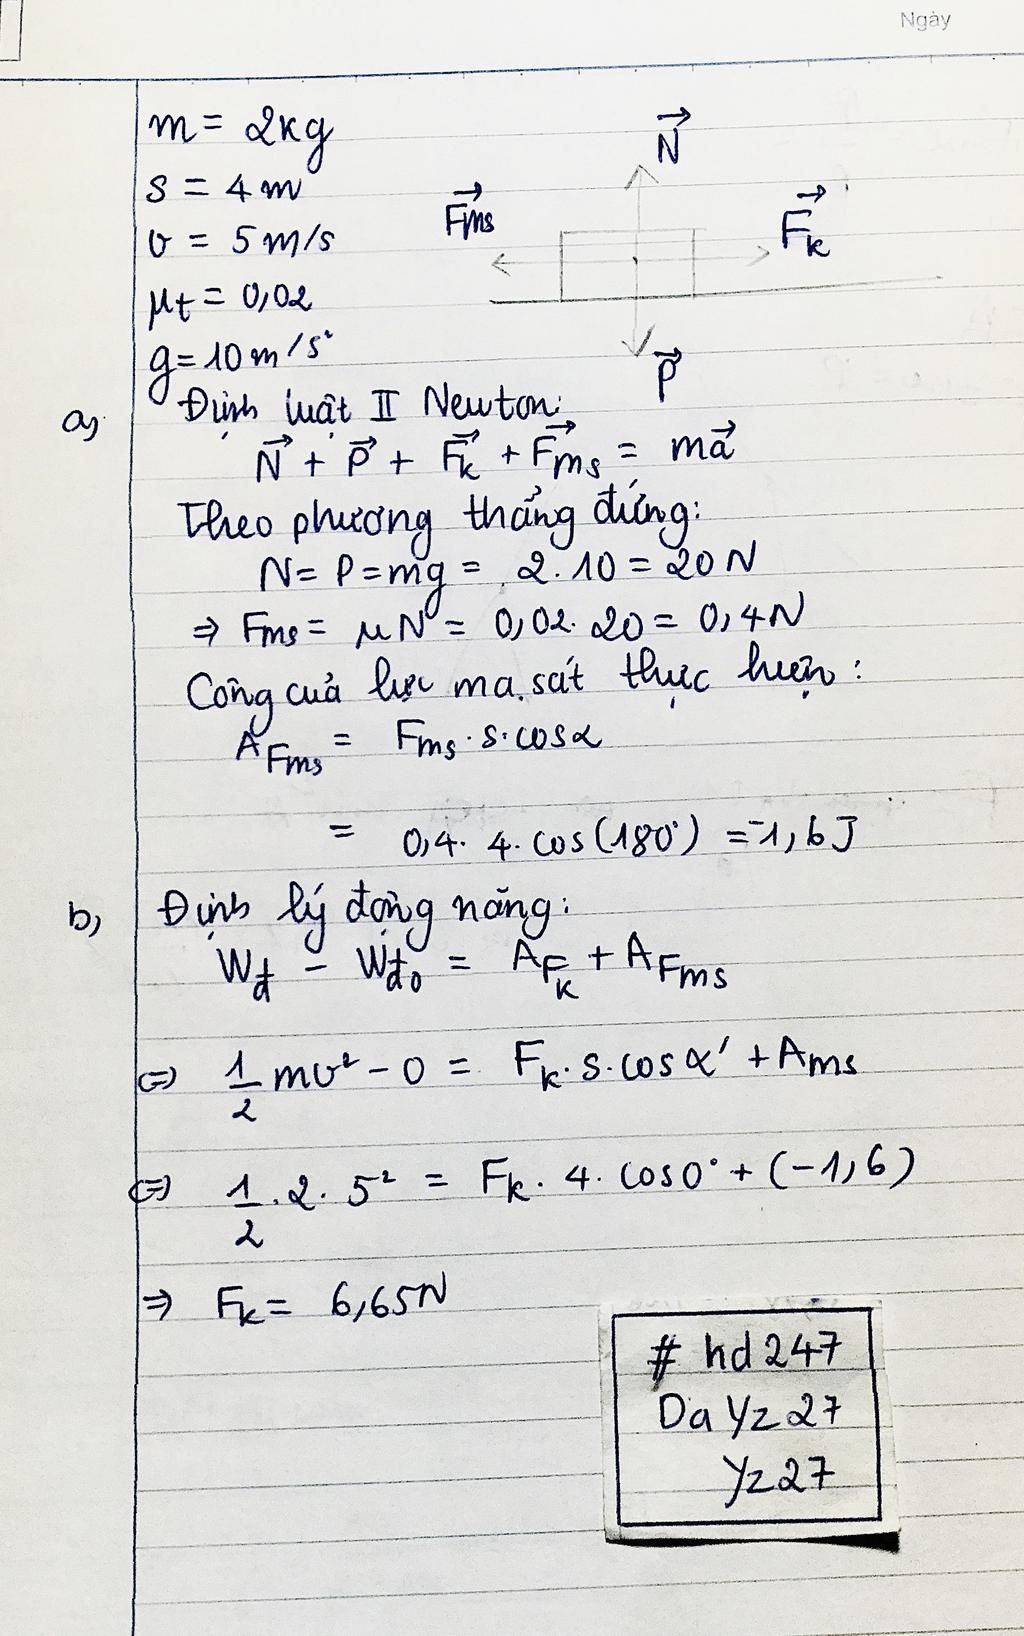 Ngày
m = 2kg
s = 4m
v = 5m/s
μt = 0,02
g = 10m/s²
N⃗
F⃗ms
F⃗k
P⃗
a, Định luật II Newton:
N⃗ + P⃗ + F⃗k + F⃗ms = ma⃗
Theo phương thẳng đứng:
N = P = mg = 2.10 = 20N
⇒ Fms = μN = 0,02. 20 = 0,4N
Công của lực ma sát thực hiện:
A_Fms = Fms.s.cosα
= 0,4. 4. cos(180°) = -1,6J
b, Định lý động năng:
Wđ - Wđ₀ = A_Fk + A_Fms
⇔ 1/2 mv² - 0 = Fk.s.cosα' + Ams
⇔ 1/2 .2. 5² = Fk. 4. cos0° + (-1,6)
⇒ Fk = 6,65N
# hd247
DaYz27
Yz27